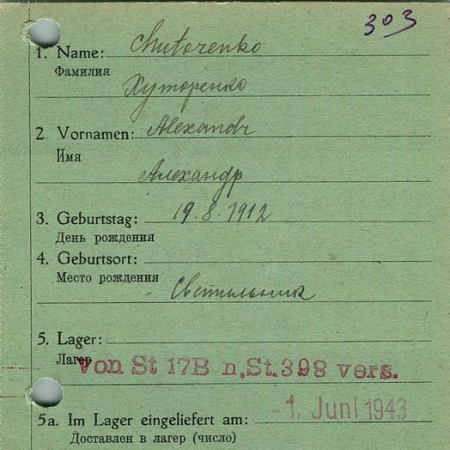 303
1. Name: Chutorenko
Фамилия
Хуторенко
2. Vornamen: Alexandr
Имя
Александр
3. Geburtstag: 19.8.1912
День рождения
4. Geburtsort:
Место рождения
Светильник
5. Lager:
Лагер
Von St 17B n, St. 398 vers.
-1. Juni 1943
5a. Im Lager eingeliefert am:
Доставлен в лагер (число)